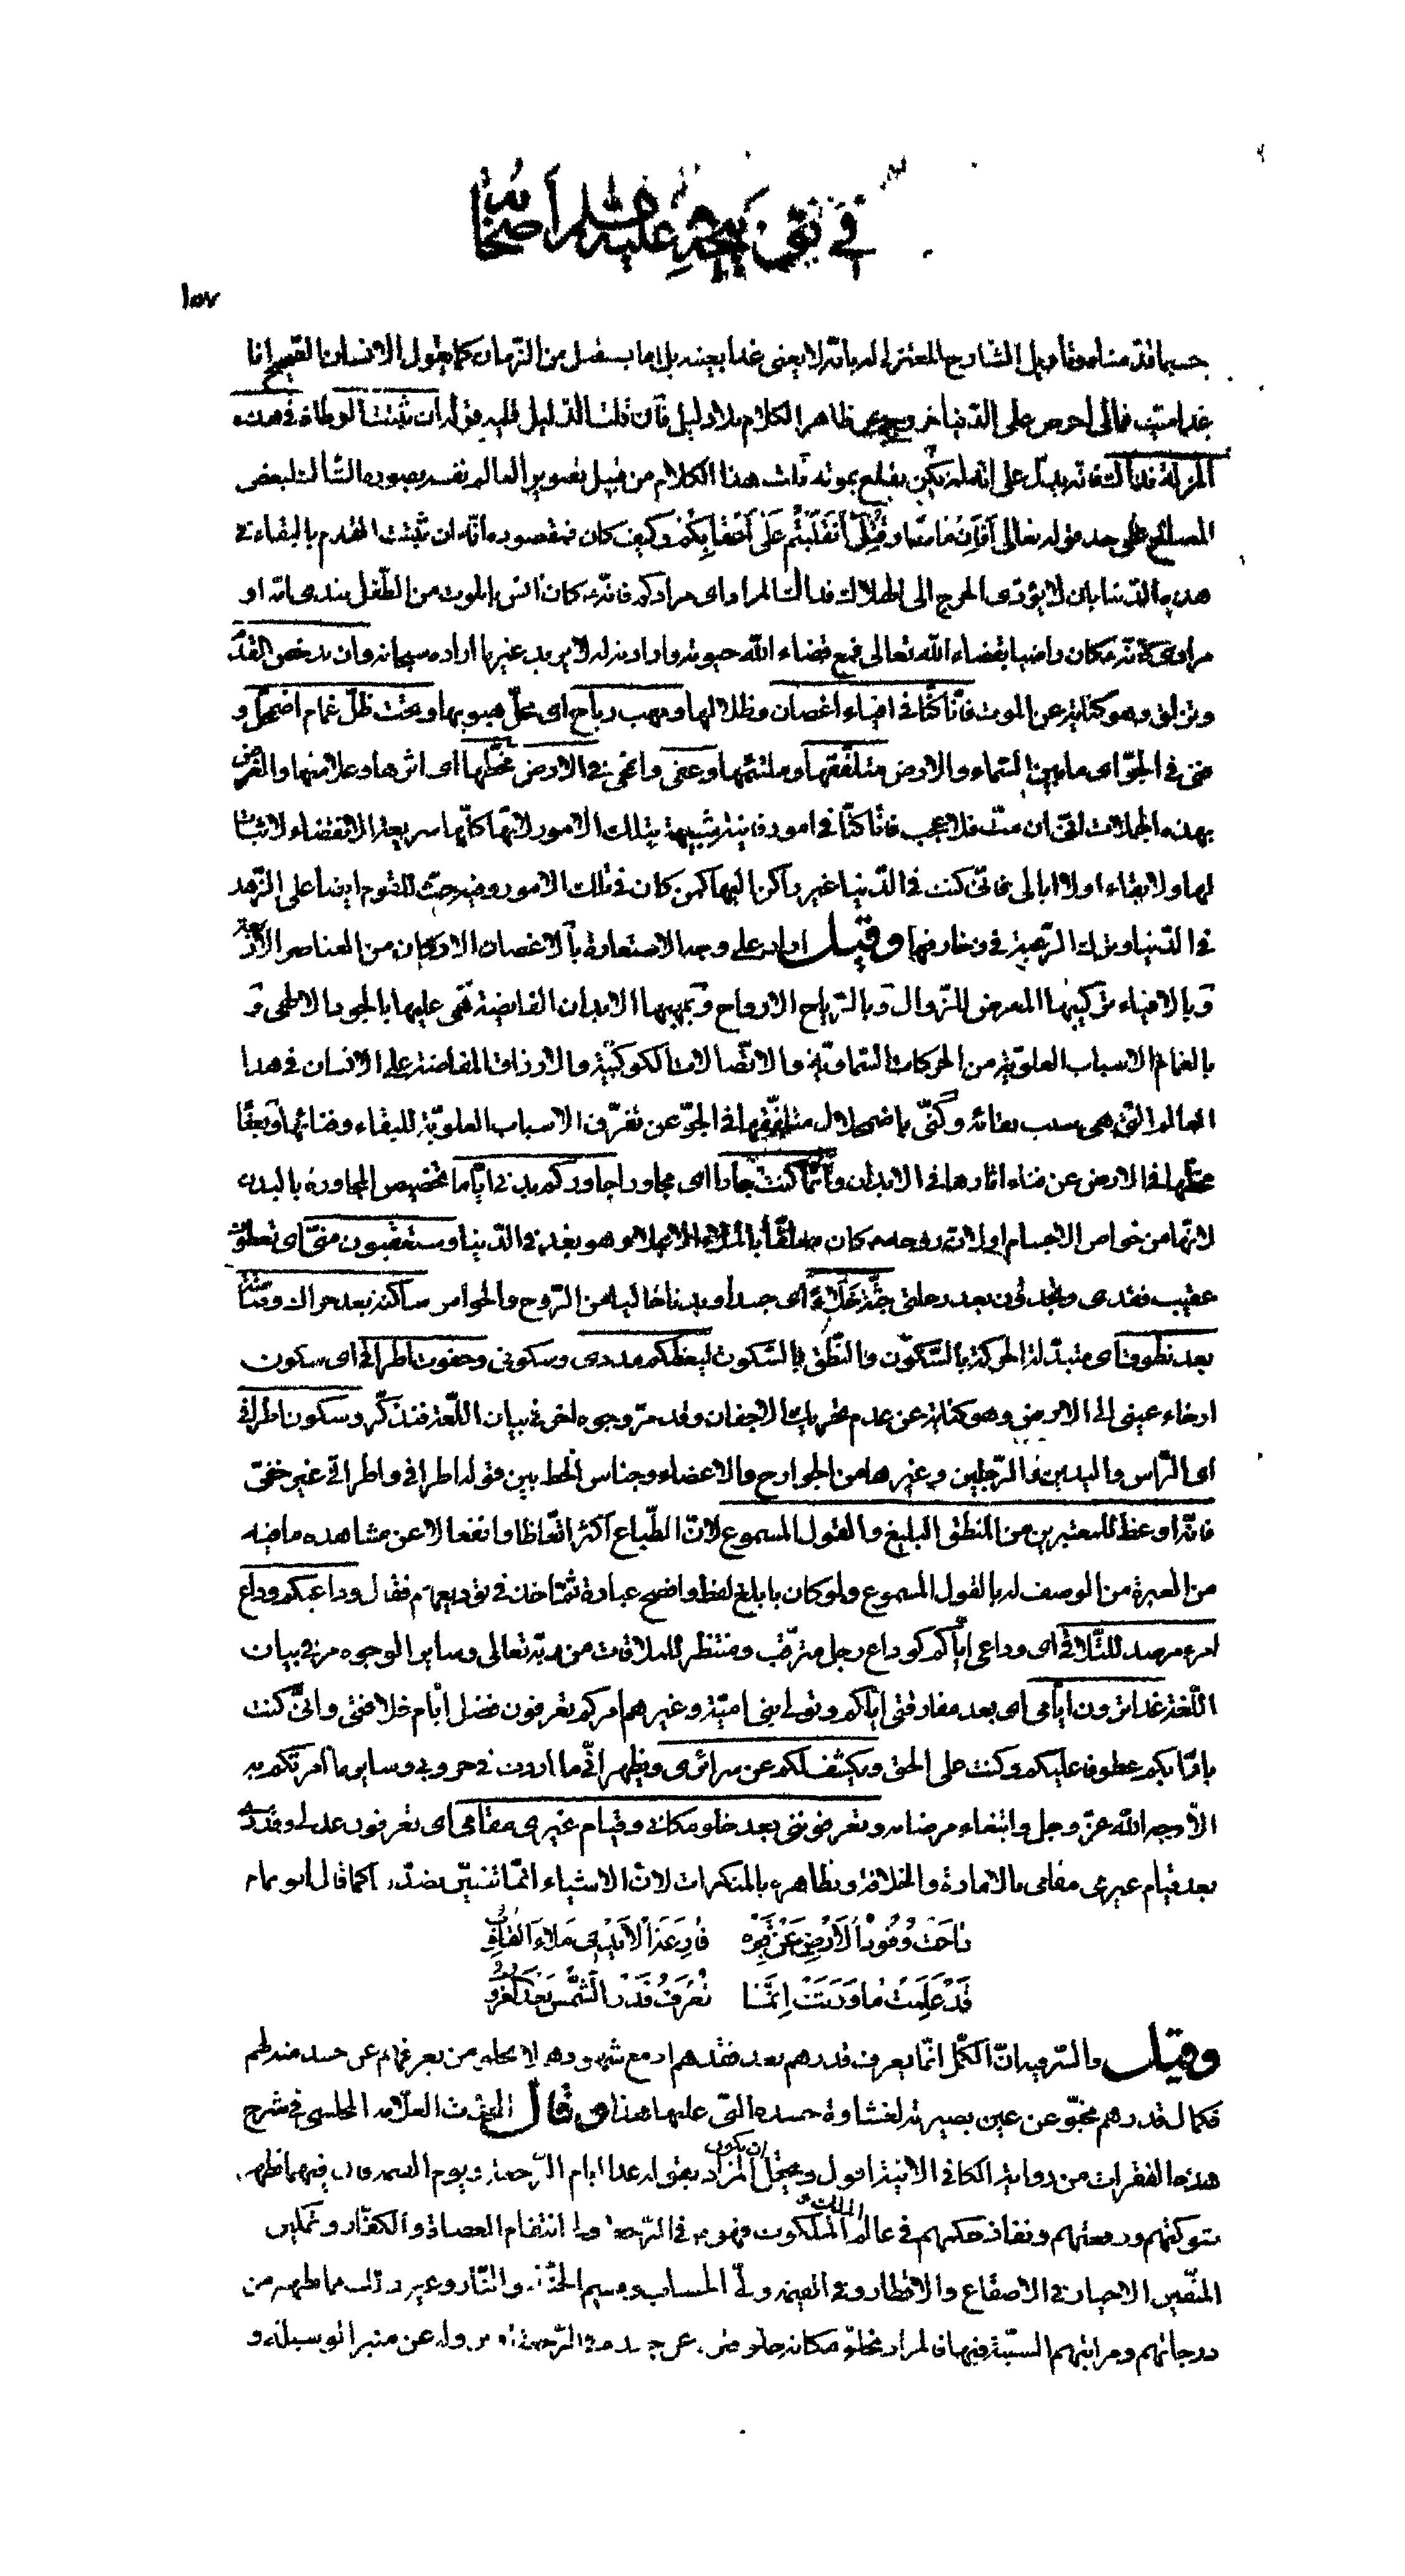 في توديعه عليه السلام أصحابه
١٥٧
حسبما قدّمناه وتأويل الشارح المعتزلي له بأنّه لا يعني غدا بعينه بل ما يستقبل من الزّمان كما يقول الانسان الصحيح انا
غدا ميّت فمالي أحرص على الدّنيا خروج عن ظاهر الكلام بلا دليل فان قلت الدّليل عليه قوله ان تثبت الوطاة في هذه
المزلّة فذاك فانّه يدلّ على انّه لم يكن يقطع بموته قلت هذا الكلام من قبيل تصوير العالم نفسه بصورة الشّاكّ لبعض
المصالح على حد قوله تعالى أَفَإِنْ ماتَ أَوْ قُتِلَ انْقَلَبْتُمْ عَلى أَعْقابِكُمْ وكيف كان فمقصوده انّه ان تثبت القدم بالبقاء في
هذه الدّنيا بان لا يؤدّى الجرح الى الهلاك فذاك المراد اى مرادكم فانّه كان آنس بالموت من الطّفل بثدى امّه او
مرادى لانّه كان راضيا بقضاء الله تعالى فمع قضاء الله حيوته واراد نه له لا يريد غير ما اراده سبحانه وان تدحض القدم
وتزلق وهو كناية عن الموت فانّا كنّا في افياء اغصان وظلالها ومهبّ رياح اى محلّ هبوبها وتحت ظلّ غمام اضمحلّ و
فنى في الجوّ اى ما بين السّماء والارض متلفّقها وملتئمها وعفى وانمحى في الارض مخطّها اى اثرها وعلامتها والغرض
بهذه الجملات انّى ان متّ فلا عجب فانّا كنّا في امور فانية شبيهة بتلك الامور لانّها كلّها سريعة الانقضاء لا ثبات
لها ولا بقاء او لا ابالى فانّى كنت في الدّنيا غير راكن اليها كمن كان في تلك الامور وفيه حثّ للقوم ايضا على الزّهد
في الدّنيا وترك الرّغبة في زخارفها وقيل اراد على وجه الاستعارة بالاغصان الاركان من العناصر الاربعة
وبالافياء تركيبها المعرض للزّوال وبالرّياح الارواح وبمهبّها الابدان الفايضة هى عليها بالجود الالهى و
بالغمام الاسباب العلويّة من الحركات السّماويّة والاتّصالات الكوكبيّة والارزاق المفاضة على الانسان في هذا
العالم الّتى هى سبب بقائه وكنّى باضمحلال متلفّقها في الجوّ عن تفرّق الاسباب العلويّة للبقاء وفنائها وبعفاء
مخطّها في الارض عن فناء آثارها في الابدان وانّما كنت جارا اى مجاورا جاوركم بدنى ايّاما تخصيص المجاورة بالبدن
لانّها من خواصّ الاجسام او لانّ روحه كان معلّقا بالملاء الاعلى وهو بعد في الدّنيا وستعقبون منّى اى تعطون
عقيب فقدى وتجدون بعد رحلتى جثّة خلاء اى جسدا وبدنا خاليا من الرّوح والحواس ساكنة بعد حراك وصامتة
بعد نطوق اى متبدّلة الحركة بالسّكون والنّطق بالسّكوت ليعظكم هدوى وسكونى وخفوت اطراقى اى سكون
ارخاء عينى إلى الارض وهو كناية عن عدم تحريك الاجفان وقد مرّ وجوه اخر في بيان اللّغة فتذكّر وسكون اطرافى
اى الرّأس واليدين والرّجلين وغيرها من الجوارح والاعضاء وجناس الخط بين قوله اطرافى واطراقى غير خفىّ
فانّه اوعظ للمعتبرين من المنطق البليغ والقول المسموع لانّ الطّباع اكثر اتّعاظا وانفعالا عن مشاهدة ما فيه
من العبرة من الوصف له بالقول المسموع ولو كان بابلغ لفظ واضح عبارة ثمّ اخذ في توديعهم فقال وداعيكم وداع
امرء مرصد للتّلاقى اى وداعى ايّاكم كوداع رجل مترقّب ومنتظر للملاقات من ربّه تعالى وساير الوجوه مرّ في بيان
اللّغة غدا ترون ايّامى اى بعد مفارقتى ايّاكم وتولى بنى اميّة وغيرهم امركم تعرفون فضل ايّام خلافتى وانّى كنت
بارّا بكم عطوفا عليكم وكنت على الحق ويكشف لكم عن سرائرى ويظهر انّى ما اردت في حروبى وساير ما امرتكم به
الّا وجه الله عزّ وجل وابتغاء مرضاته وتعرفوننى بعد خلو مكانى وقيام غيرى مقامى اى تعرفون عدلى وقدرى
بعد قيام غيرى مقامى بالامارة والخلافة وتظاهره بالمنكرات لانّ الاشياء انّما تتبيّن بضدّها كما قال ابو تمام
راحَتْ وُفُودُ الأَرْضِ عَنْ قَبْرِهِ فارِغَةَ الأَيْدِى مِلاءَ القُلُوبِ
قَدْ عَلِمَتْ ما رُزِئَتْ اِنَّما تُعْرَفُ قَدْرُ الشَّمْسِ بَعْدَ الغُرُوبِ
وقيل والسّر فيه انّ الكمّل انّما يعرف قدرهم بعد فقدهم اذ مع شهودهم لا يخلو من يعرفهم عن حسد منه لهم
فكمال قدرهم مخبوّ عن عين بصيرته لغشاوة حسده الّتى عليها هذا وقال المحدّث العلّامة المجلسى في شرح
هذه الفقرات من رواية الكافى الآتية اقول ويحتمل ان يكون المراد بقوله غدا ايّام الرّجعة ويوم القيمة فانّ فيهما تظهر
شوكتهم ورفعتهم ونفاذ حكمهم في عالم الملك والملكوت فهو في الرّجعة ولىّ انتقام العصاة والكفّار وتمكين
المتّقين الاخيار في الاصقاع والاقطار وفى القيمة ولىّ الحساب وقسيم الجنّة والنّار وغير ذلك مما يظهر من
درجاتهم ومراتبهم السنيّة فيها فالمراد بخلوّ مكانه خلو قبره عن جسده في الرّجعة او نزوله عن منبر الوسيلة و